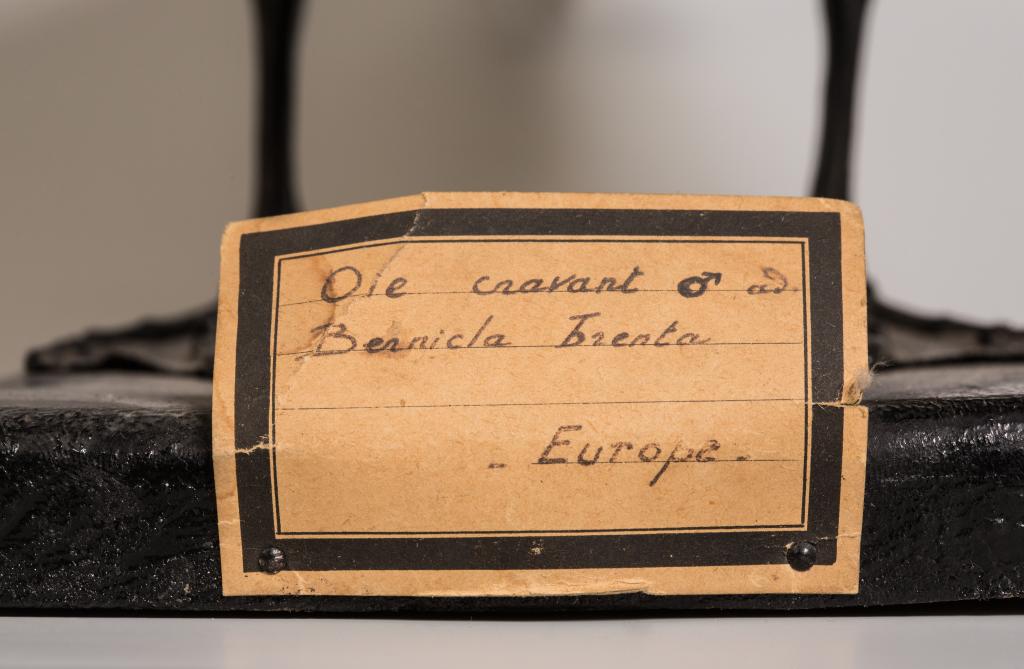 Oie cravant ♂ ad.
Bernicla brenta
- Europe -